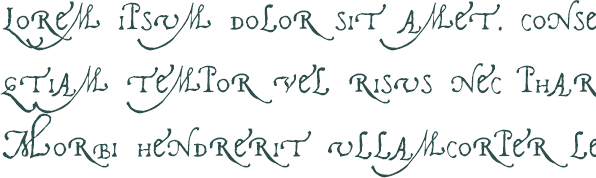 Lorem ipsum dolor sit amet, conse
etiam tempor vel risus nec phar
Morbi hendrerit ullamcorper le